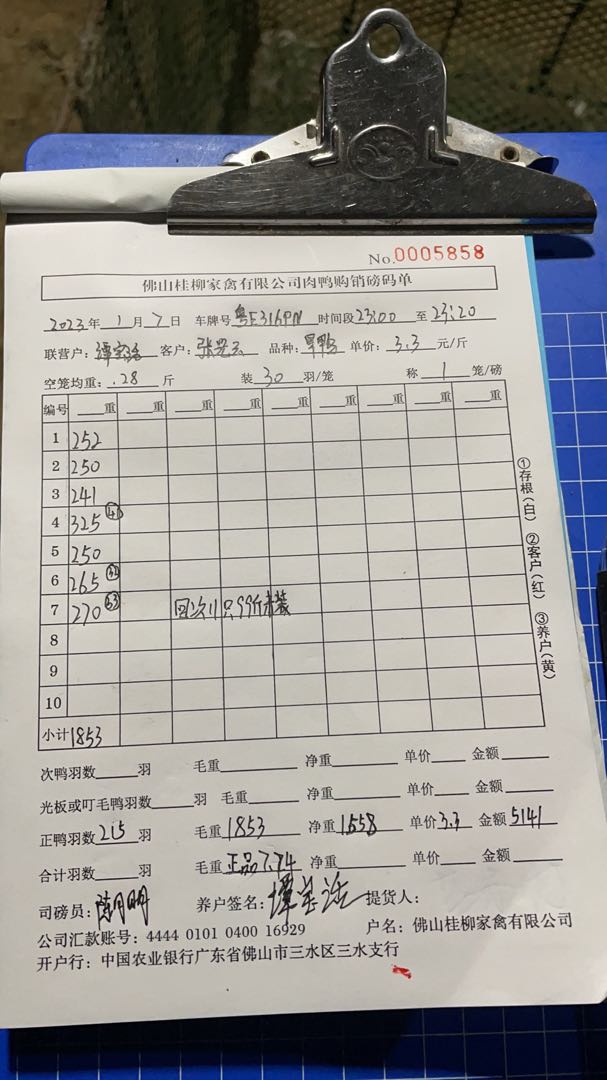 No.0005858
佛山桂柳家禽有限公司肉鸭购销磅码单
2023年1月7日 车牌号粤E316PN 时间段23:00至23:20
联营户： 客户： 品种： 单价：3.3元/斤
空笼均重：.28斤 装30羽/笼 称1笼/磅
编号 重 重 重 重 重 重 重 重
1 252
2 250
3 241
4 325 41
5 250
6 265
7 270 回次11只99斤未装
8
9
10
小计 1853
次鸭羽数 羽 毛重 净重 单价 金额
光板或叮毛鸭羽数 羽 毛重 净重 单价 金额
正鸭羽数215羽 毛重1853 净重1558 单价3.3 金额5141
合计羽数 羽 毛重正品7.74 净重 单价 金额
司磅员：陈月明 养户签名： 提货人：
公司汇款账号：4444 0101 0400 16929 户名：佛山桂柳家禽有限公司
开户行：中国农业银行广东省佛山市三水区三水支行
①存根（白） ②客户（红） ③养户（黄）